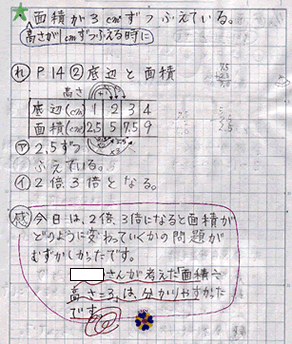 面積が3cm²ずつふえている。
高さが1cmずつふえる時に
れ P14② 底辺と面積
高さ
底辺(cm) 1 2 3 4
面積(cm²) 2.5 5 7.5 9
㋐ 2.5ずつ
ふえている。
㋑ 2倍、3倍となる。
感 今日は、2倍、3倍になると面積が
どのように変わっていくかの問題が
むずかしかったです。
さんが考えた面積÷
高さ=3、は、分かりやすかった
です。